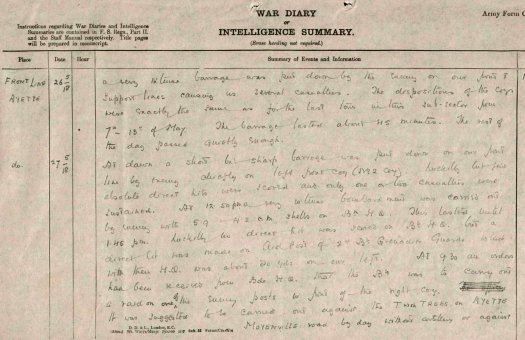 WAR DIARY
Army Form C
or
INTELLIGENCE SUMMARY.
Instructions regarding War Diaries and Intelligence
Summaries are contained in F. S. Regs., Part II.
and the Staff Manual respectively. Title pages
will be prepared in manuscript.
(Erase heading not required.)
Place Date Hour Summary of Events and Information
FRONT LINE 26 5/18 a very intense barrage was put down by the enemy on our front &
AYETTE support lines causing us several casualties. The dispositions of the Coys
were exactly the same as for the last tour in this sub-sector from
7th - 13th of May. The barrage lasted about 45 minutes. The rest of
the day passed quietly enough.
do. 27 5/18 At dawn a short but sharp barrage was put down on our front
line by enemy directly on left front coy (No 2 Coy). Luckily but few
absolute direct hits were scored and only one or two casualties were
sustained. At 12 a very intense bombardment was carried out
by enemy with 5.9 & 4.2 cm shells on Bn H.Q. This lasted until
1.45 pm. Luckily no direct hit was scored on Bn H.Q. but a
direct hit was made on Aid Post of 2nd Bn Grenadier Guards
with their H.Q. was about 30 yds on our left. At 9.30 an orders
had been received from Bde H.Q. that the Bn was to carry out
a raid on one of the enemy posts in front of the right coy.
It was suggested to be carried out against the TWO TREES on AYETTE
MOYENVILLE road by day without artillery or against
D. D. & L., London, E.C.